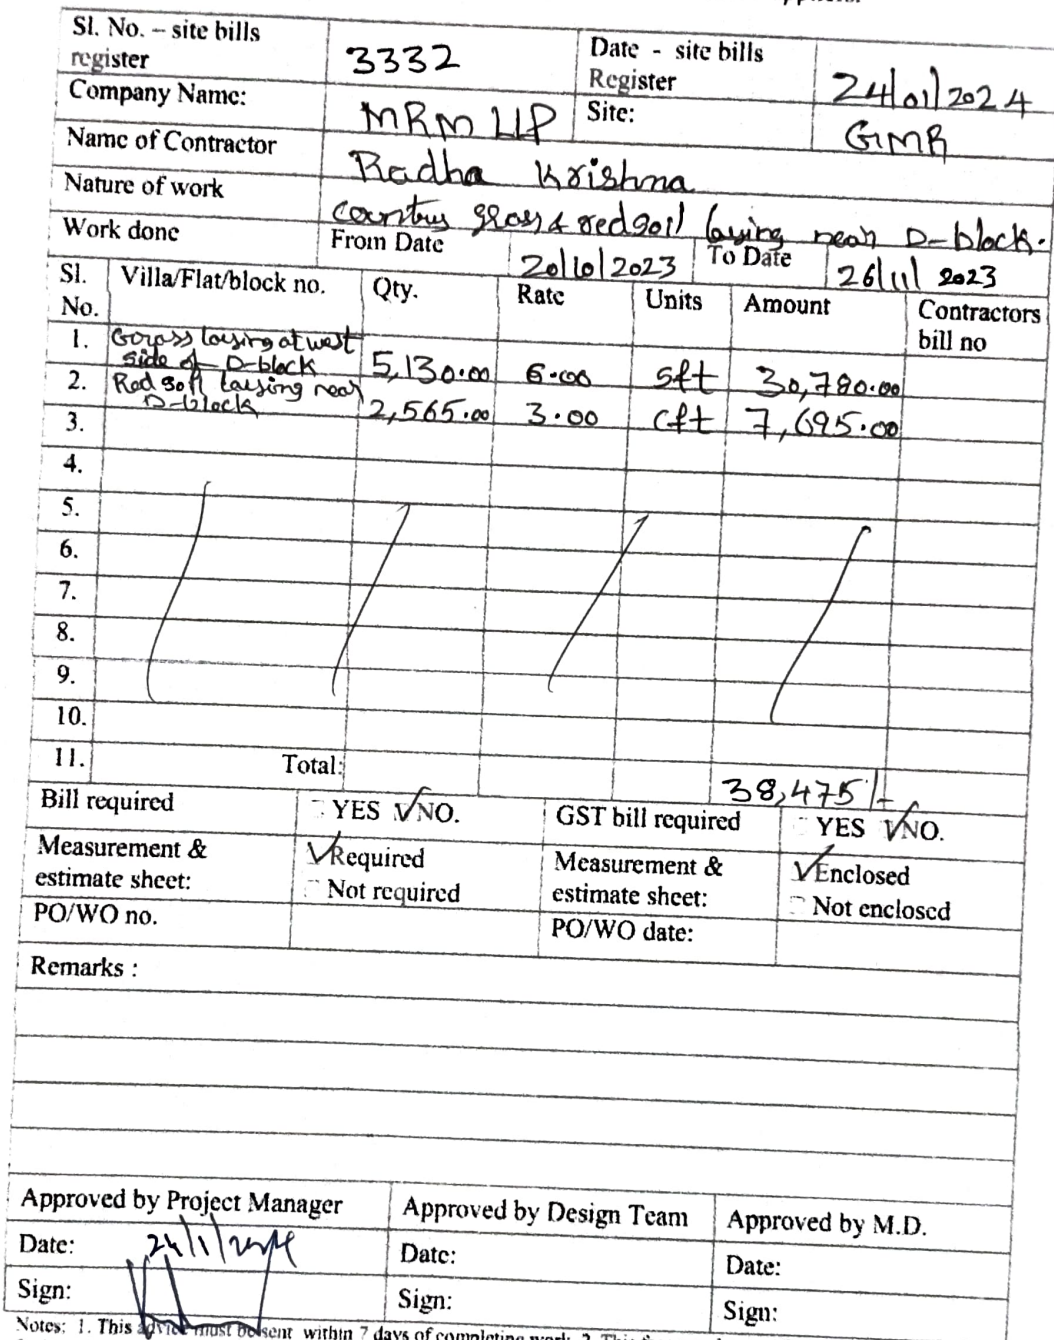 Sl. No. – site bills register 3332 Date - site bills Register 24/01/2024
Company Name: MRM LLP Site: GMR
Name of Contractor Radha Krishna
Nature of work country grass & redsoil laying near D-block.
Work done From Date 20/10/2023 To Date 26/11/2023
Sl. No. Villa/Flat/block no. Qty. Rate Units Amount Contractors bill no
1. Grass laying at west side of D-block 5,130.00 6.00 sft 30,780.00
2. Red soil laying near D-block 2,565.00 3.00 cft 7,695.00
3.
4.
5.
6.
7.
8.
9.
10.
11. Total: 38,475/-
Bill required YES ✓NO. GST bill required YES ✓NO.
Measurement & estimate sheet: ✓Required Measurement & estimate sheet: ✓Enclosed
Not required Not enclosed
PO/WO no. PO/WO date:
Remarks :
Approved by Project Manager Approved by Design Team Approved by M.D.
Date: 24/1/2024 Date: Date:
Sign: Sign: Sign:
Notes: 1. This advice must be sent within 7 days of completing work. 2. This